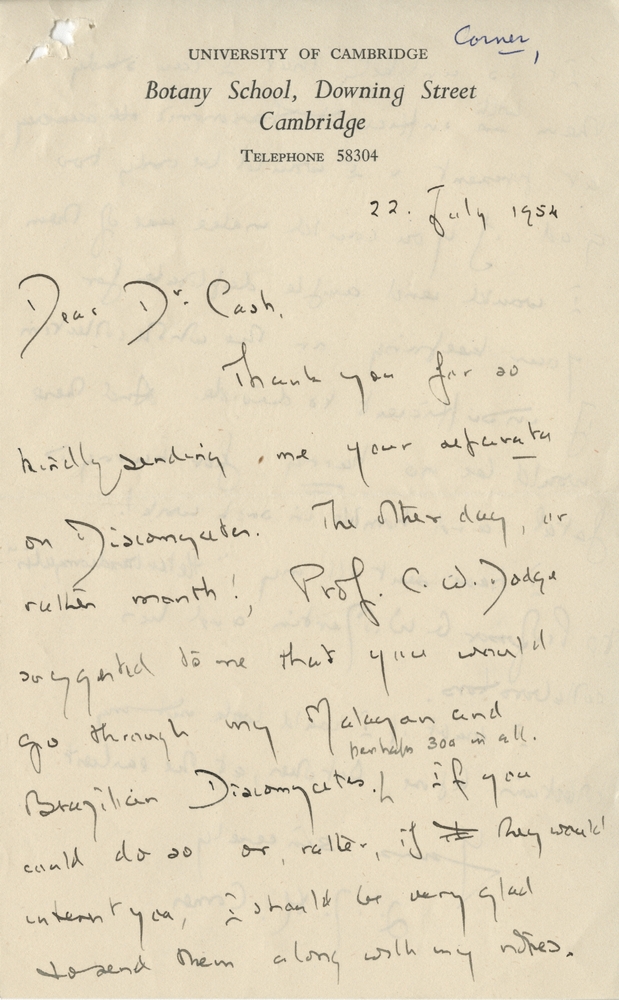 Corner,
UNIVERSITY OF CAMBRIDGE
Botany School, Downing Street
Cambridge
TELEPHONE 58304
22. July 1954
Dear Dr. Cash,
Thank you for so
kindly sending me your separata
on Discomycetes. The other day, or
rather month!, Prof. C. W. Dodge
suggested to me that you would
go through my Malayan and
perhaps 300 in all.
Brazilian Discomycetes. If you
could do so or, rather, if they would
interest you, I should be very glad
to send them along with my notes.